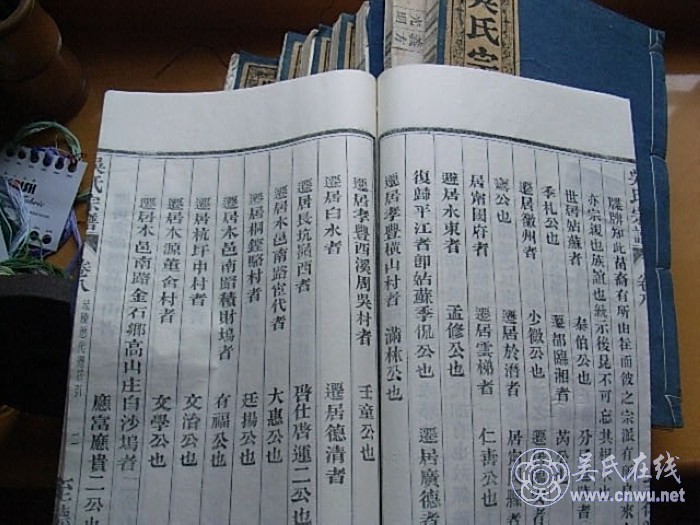 吳氏宗
吳氏宗譜 卷八
牒別知此苗裔有所由徃而彼之宗派有所自來
亦宗親也族誼也統示後昆不可忘其
世居姑蘇者 泰伯公也
季札公也 遷鄱臨湘者 芮公也
遷居徽州者 小微公也 遷
公也 遷居於潛者 居
居甯國府者 遷居雲梯者 仁壽公也
遷居水東者 孟修公也
復歸平江者卽姑蘇季侃公也 遷居廣德者
遷居孝豐橫山村者 滿林公也
遷居孝豐西溪周吳村者 壬童公也
遷居白水者 遷居德清者
遷居長坑嶺西者 啓仕啓運二公也
遷居本邑南路宦代者 大惠公也
遷居桐鏜駱村者 廷揚公也
遷居本邑南路積財塢者 有福公也
遷居杭坪中村者 文治公也
遷居本源董侖村者 文學公也
遷居本邑南路金石鄉高山庄白沙塢者 應富應貴二公也
吳氏宗譜 卷八 二
吴氏在线
www.cnwu.net